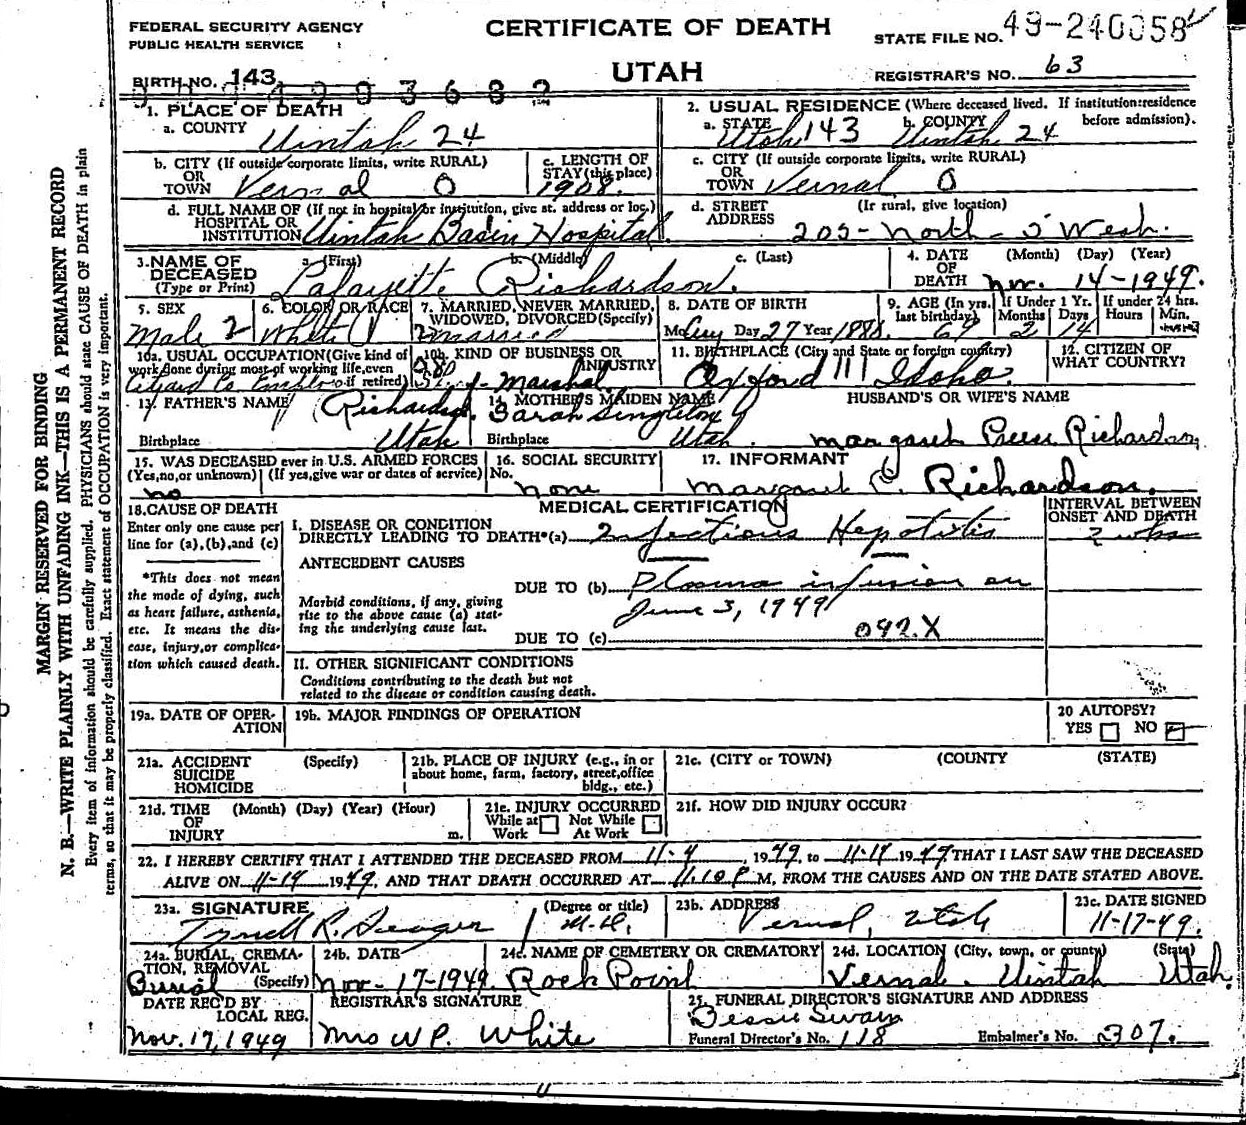 FEDERAL SECURITY AGENCY
PUBLIC HEALTH SERVICE
CERTIFICATE OF DEATH
UTAH
STATE FILE NO. 49-240058
REGISTRAR'S NO. 63
BIRTH NO. 143
1. PLACE OF DEATH
a. COUNTY Uintah 24
b. CITY (If outside corporate limits, write RURAL)
OR
TOWN Vernal 0
c. LENGTH OF
STAY (this place)
1908.
d. FULL NAME OF (If not in hospital or institution, give st. address or loc.)
HOSPITAL OR
INSTITUTION Uintah Basin Hospital.
2. USUAL RESIDENCE (Where deceased lived. If institution:residence
before admission).
a. STATE Utah 143 b. COUNTY Uintah 24
c. CITY (If outside corporate limits, write RURAL)
OR
TOWN Vernal 0
d. STREET (If rural, give location)
ADDRESS
205 - North 5 West.
3. NAME OF
DECEASED
(Type or Print)
a. (First) b. (Middle) c. (Last)
Lafayette Richardson.
4. DATE (Month) (Day) (Year)
OF
DEATH Nov. 14-1949.
5. SEX
Male 2
6. COLOR OR RACE
White
7. MARRIED, NEVER MARRIED,
WIDOWED, DIVORCED (Specify)
Married
8. DATE OF BIRTH
Mo Aug Day 27 Year 1880.
9. AGE (In yrs.
last birthday)
69
If Under 1 Yr.
Months Days
2 14
If under 24 hrs.
Hours Min.
10a. USUAL OCCUPATION (Give kind of
work done during most of working life, even
if retired)
10b. KIND OF BUSINESS OR
INDUSTRY
Marshal.
11. BIRTHPLACE (City and State or foreign country)
Oxford 111 Idaho.
12. CITIZEN OF
WHAT COUNTRY?
13. FATHER'S NAME
Richardson.
Birthplace Utah
14. MOTHER'S MAIDEN NAME
Sarah Singleton
Birthplace Utah.
HUSBAND'S OR WIFE'S NAME
Margaret Reese Richardson
15. WAS DECEASED ever in U.S. ARMED FORCES
(Yes, no, or unknown) (If yes, give war or dates of service)
no
16. SOCIAL SECURITY
No.
none
17. INFORMANT
Margaret C. Richardson.
18. CAUSE OF DEATH
Enter only one cause per
line for (a), (b), and (c)
*This does not mean
the mode of dying, such
as heart failure, asthenia,
etc. It means the dis-
ease, injury, or complica-
tion which caused death.
MEDICAL CERTIFICATION
INTERVAL BETWEEN
ONSET AND DEATH
I. DISEASE OR CONDITION
DIRECTLY LEADING TO DEATH*(a) Infectious Hepatitis
2 wks
ANTECEDENT CAUSES
Morbid conditions, if any, giving
rise to the above cause (a) stat-
ing the underlying cause last.
DUE TO (b) Plasma infusion on
June 3, 1949
DUE TO (c) 092.X
II. OTHER SIGNIFICANT CONDITIONS
Conditions contributing to the death but not
related to the disease or condition causing death.
19a. DATE OF OPER-
ATION
19b. MAJOR FINDINGS OF OPERATION
20 AUTOPSY?
YES NO
21a. ACCIDENT (Specify)
SUICIDE
HOMICIDE
21b. PLACE OF INJURY (e.g., in or
about home, farm, factory, street, office
bldg., etc.)
21c. (CITY or TOWN) (COUNTY) (STATE)
21d. TIME (Month) (Day) (Year) (Hour)
OF
INJURY m.
21e. INJURY OCCURRED
While at Not While
Work At Work
21f. HOW DID INJURY OCCUR?
22. I HEREBY CERTIFY THAT I ATTENDED THE DECEASED FROM 11-4, 1949, to 11-14 1949 THAT I LAST SAW THE DECEASED
ALIVE ON 11-14 1949, AND THAT DEATH OCCURRED AT 11:10 P M, FROM THE CAUSES AND ON THE DATE STATED ABOVE.
23a. SIGNATURE (Degree or title)
Tyrrell R. Seager M.D.
23b. ADDRESS
Vernal, Utah
23c. DATE SIGNED
11-17-49.
24a. BURIAL, CREMA-
TION, REMOVAL
(Specify)
Burial
24b. DATE
Nov-17-1949.
24c. NAME OF CEMETERY OR CREMATORY
Rock Point
24d. LOCATION (City, town, or county) (State)
Vernal. Uintah Utah.
DATE REC'D BY
LOCAL REG.
Nov. 17, 1949
REGISTRAR'S SIGNATURE
Mrs W P. White
25. FUNERAL DIRECTOR'S SIGNATURE AND ADDRESS
Bessie Swain
Funeral Director's No. 118 Embalmer's No. 307.
MARGIN RESERVED FOR BINDING
N. B.—WRITE PLAINLY WITH UNFADING INK—THIS IS A PERMANENT RECORD
Every item of information should be carefully supplied. PHYSICIANS should state CAUSE OF DEATH in plain
terms, so that it may be properly classified. Exact statement of OCCUPATION is very important.